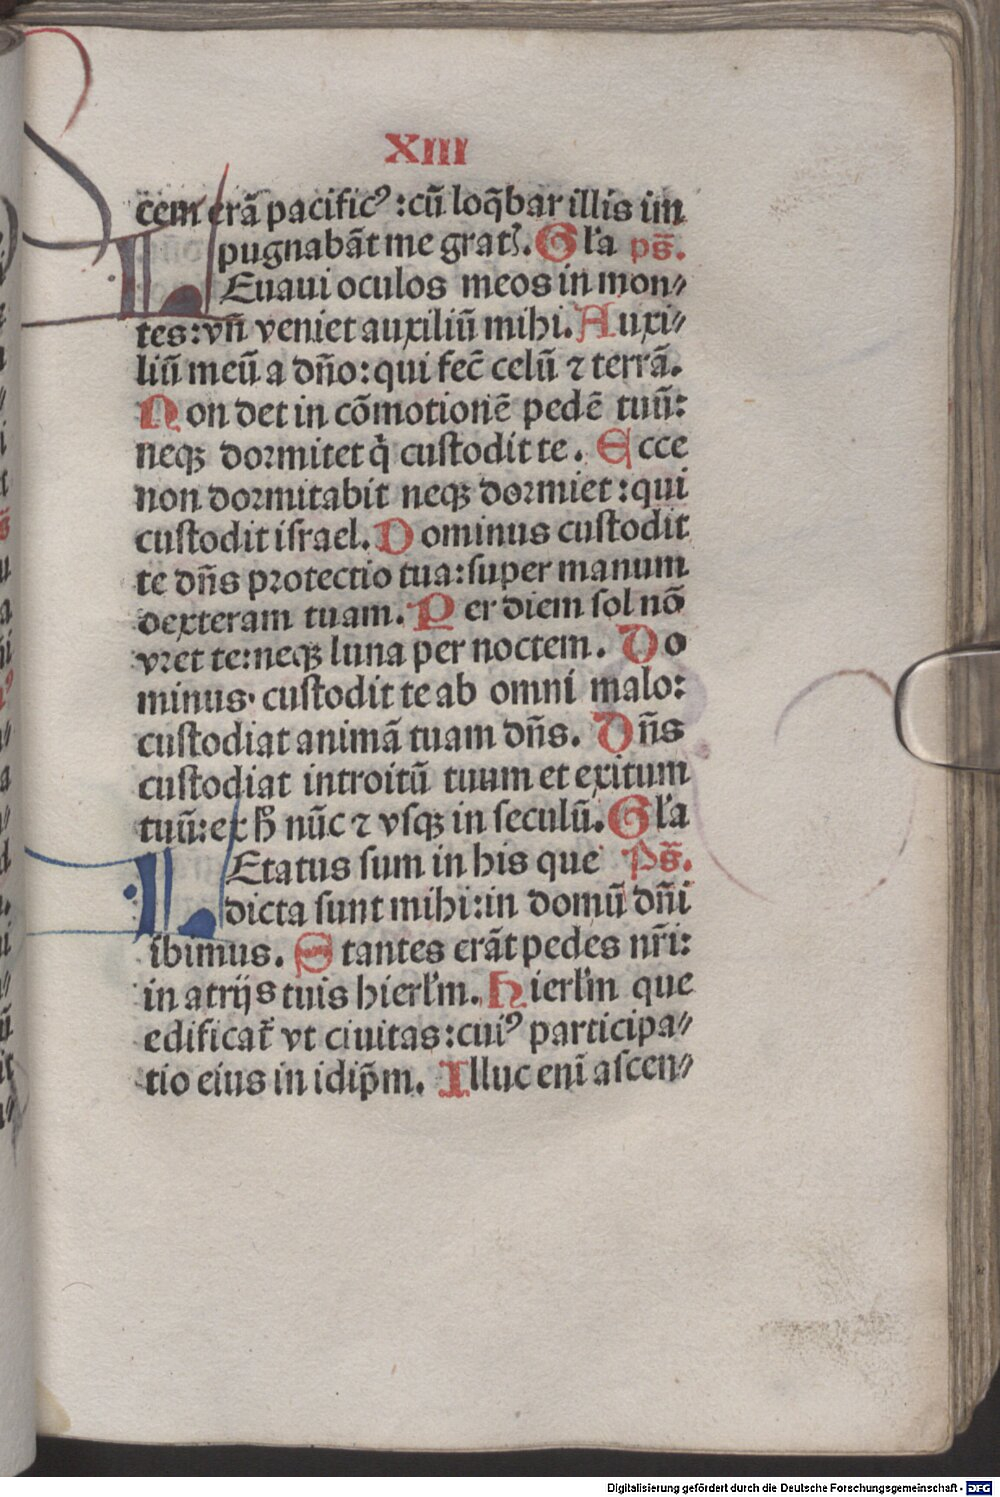 XIII
cem erã pacificꝰ :cũ loq̃bar illis im
pugnabãt me gratꝭ. Gl'a ps̃.
LEuaui oculos meos in mon⸗
tes:vñ veniet auxiliũ mihi. Auxi⸗
liũ meũ a dño:qui fec̃ celũ ⁊ terrã.
Non det in cõmotionẽ pedẽ tuũ:
neqꝫ dormitet q̇ custodit te. Ecce
non dormitabit neqꝫ dormiet:qui
custodit israel. Dominus custodit
te dñs protectio tua:super manum
dexteram tuam. Per diem sol nõ
vret te:neqꝫ luna per noctem. Do
minus custodit te ab omni malo:
custodiat animã tuam dñs. Dñs
custodiat introitũ tuum et exitum
tuũ:ex h̃ nũc ⁊ vsqꝫ in seculũ. Gl'a
LEtatus sum in his que Ps̃.
dicta sunt mihi:in domũ dñi
ibimus. Stantes erãt pedes nr̃i:
in atrijs tuis hierl'm. Hierl'm que
edificat̃ vt ciuitas:cuiꝰ participa⸗
tio eius in idip̃m. Illuc enĩ ascen⸗
Digitalisierung gefördert durch die Deutsche Forschungsgemeinschaft - DFG